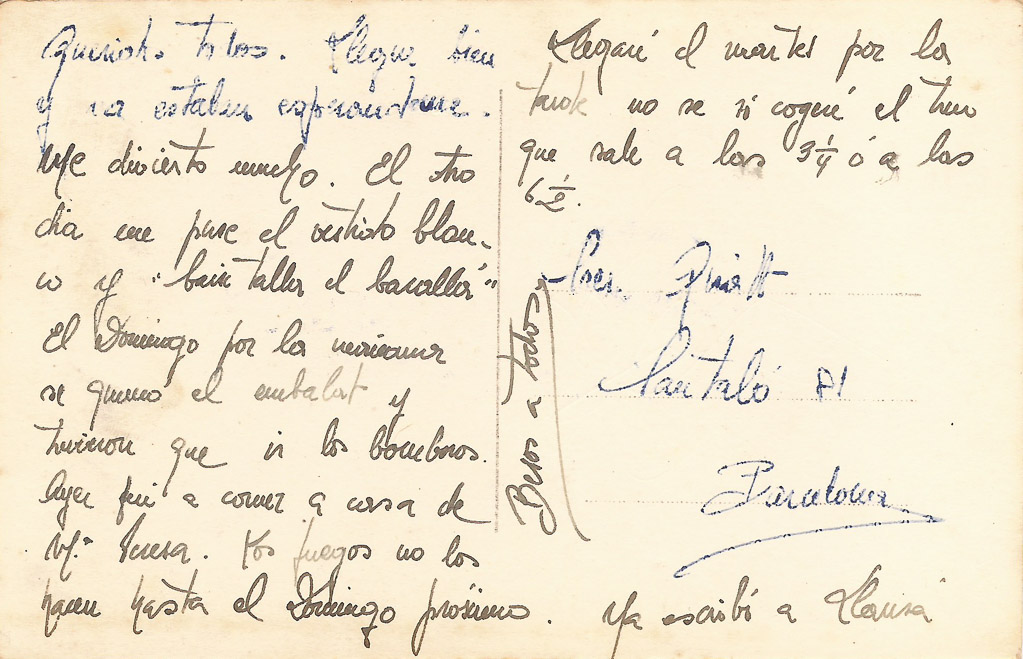 Queridos todos. Llegue bien
y ya estaban esperandome.
Me divierto mucho. El otro
dia me puse el vestido blan-
co y "
El Domingo por la mañana
se quemó el embalat y
tuvieron que ir los bomberos.
Ayer fui a comer a casa de
Mª Teresa. Los fuegos no los
hacen hasta el Domingo próximo. Ya escribí a
Llegaré el martes por la
tarde no se si cogeré el tren
que sale a las 3 1/4 ó a las
6 1/2.
Besos a todos
Santaló 81
Barcelona